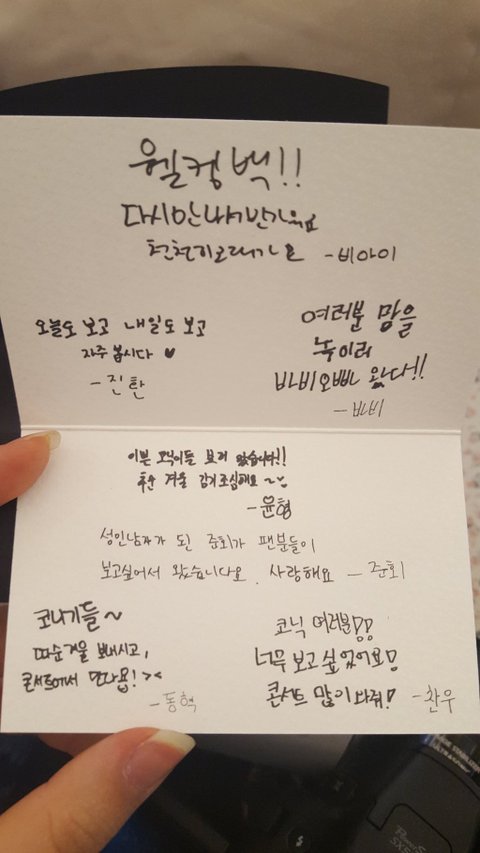 웰컴백!!
다시만나서반가워요
천천히오래가요 -비아이
오늘도 보고 내일도 보고
자주 봅시다 ♥
-진환
여러분 맘을
녹이러
바비오빠 왔다!!
-바비
이쁜 코닉이들 보러 왔습니다!!
추운 겨울 감기조심해요~
-윤형
성인남자가 된 준회가 팬분들이
보고싶어서 왔습니다요. 사랑해요 -준회
코니기들~
따순겨울 보내시고,
콘서트에서 만나욥! ><
-동혁
코닉 여러분!!
너무 보고 싶었어요!
콘서트 많이 와줘! -찬우
PowerS
SX5